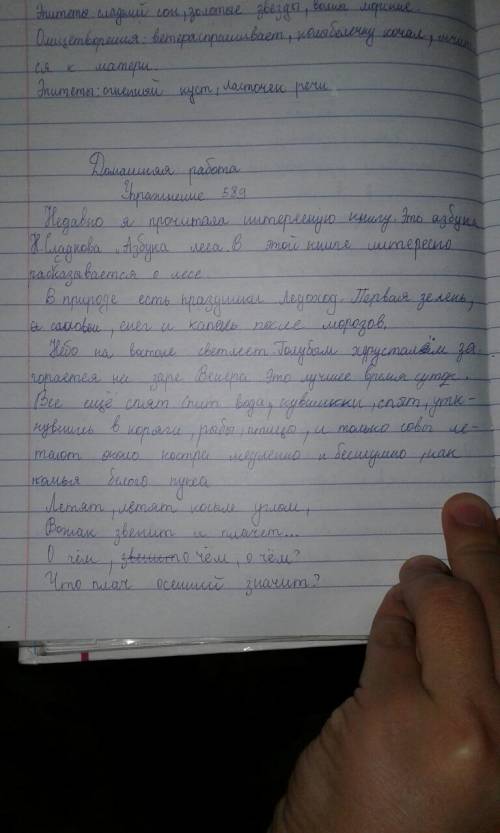 Эпитеты сладкий сон, золотые звёзды, волна
Олицетворения: ветера спрашивает, колыбелочку качал,
ся к матери.
Эпитеты: огненный куст, ласточек речи
Домашняя работа
Упражнение 589
Недавно я прочитала интересную книгу. Это азбука
Н. Сладкова. Азбука леса. В этой книге интересно
расказывается о лесе
В природе есть праздники Ледоход. Первая зелень,
соловьи, снег и капель после морозов.
Небо на востоке светлеет Голубым хрусталём за-
горается на заре Венера Это лучшее время суток.
Все ещё спят Спит вода, кувшинки, спят, утк-
нувшись в коряги, рыбы, птицы, и только совы ле-
тают около костра медленно и бесшумно, как
комья белого пуха
Летят, летят косым углом,
Вожак звенит и плачет...
О чём, звенит о чём, о чём?
Что плач осенний значит?